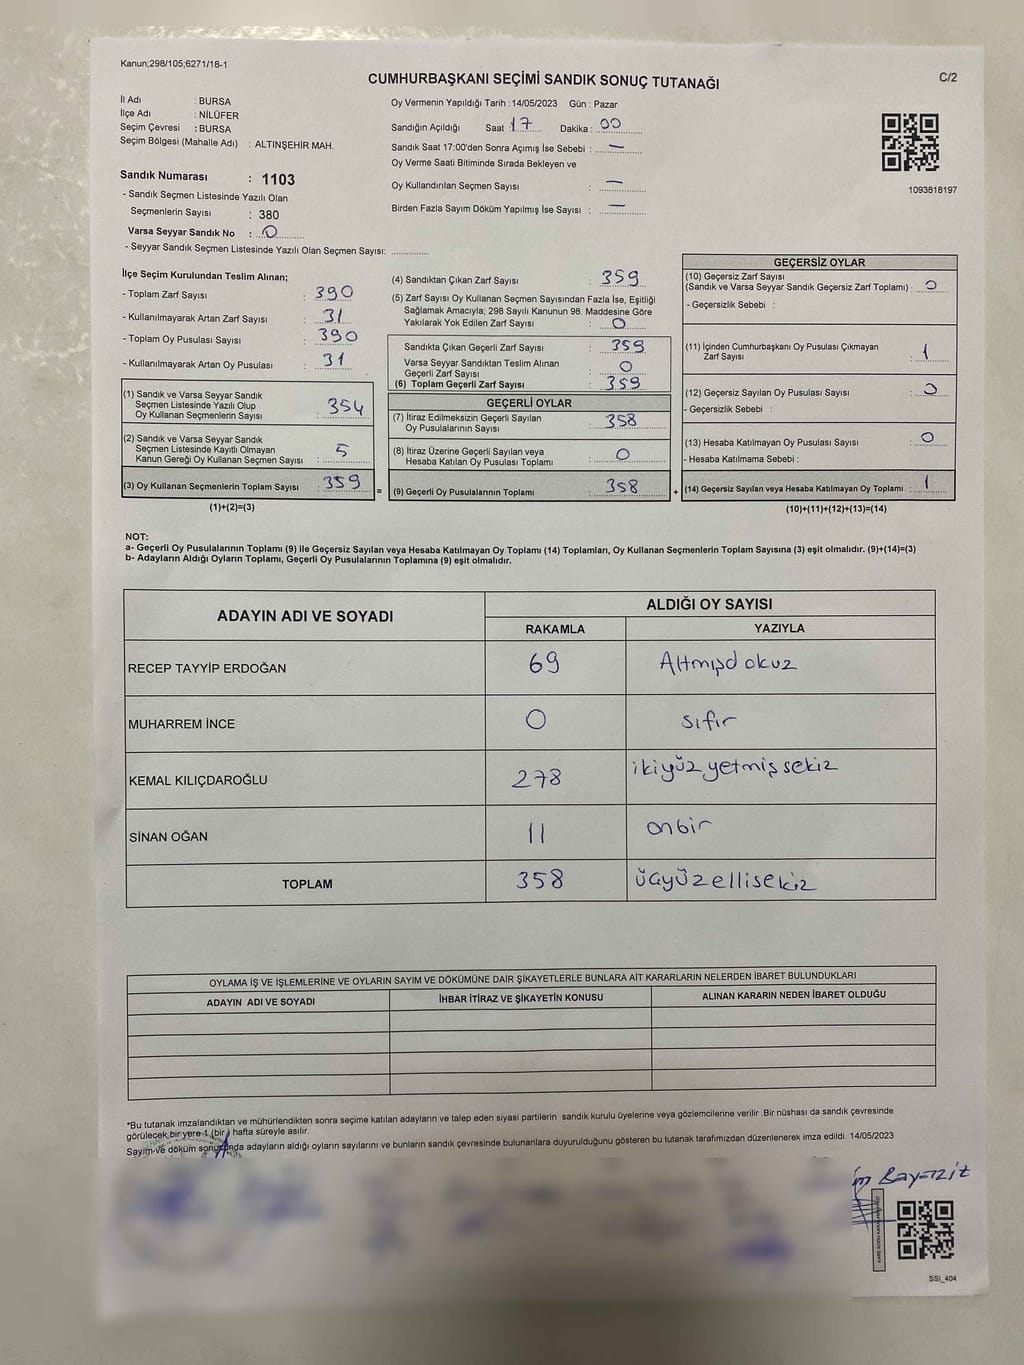 Kanun;298/105;6271/18-1
C/2
CUMHURBAŞKANI SEÇİMİ SANDIK SONUÇ TUTANAĞI
İl Adı : BURSA
İlçe Adı : NİLÜFER
Seçim Çevresi : BURSA
Seçim Bölgesi (Mahalle Adı) : ALTINŞEHİR MAH.
Sandık Numarası : 1103
- Sandık Seçmen Listesinde Yazılı Olan
Seçmenlerin Sayısı : 380
Varsa Seyyar Sandık No : 0
- Seyyar Sandık Seçmen Listesinde Yazılı Olan Seçmen Sayısı: ..............
Oy Vermenin Yapıldığı Tarih : 14/05/2023 Gün : Pazar
Sandığın Açıldığı Saat : 17 Dakika : 00
Sandık Saat 17:00'den Sonra Açımış İse Sebebi : —
Oy Verme Saati Bitiminde Sırada Bekleyen ve
Oy Kullandırılan Seçmen Sayısı : —
Birden Fazla Sayım Döküm Yapılmış İse Sayısı : —
1093818197
İlçe Seçim Kurulundan Teslim Alınan;
- Toplam Zarf Sayısı : 390
- Kullanılmayarak Artan Zarf Sayısı : 31
- Toplam Oy Pusulası Sayısı : 390
- Kullanılmayarak Artan Oy Pusulası : 31
(1) Sandık ve Varsa Seyyar Sandık
Seçmen Listesinde Yazılı Olup
Oy Kullanan Seçmenlerin Sayısı : 354
(2) Sandık ve Varsa Seyyar Sandık
Seçmen Listesinde Kayıtlı Olmayan
Kanun Gereği Oy Kullanan Seçmen Sayısı : 5
(3) Oy Kullanan Seçmenlerin Toplam Sayısı : 359
(1)+(2)=(3)
=
(4) Sandıktan Çıkan Zarf Sayısı : 359
(5) Zarf Sayısı Oy Kullanan Seçmen Sayısından Fazla İse, Eşitliği
Sağlamak Amacıyla; 298 Sayılı Kanunun 98. Maddesine Göre
Yakılarak Yok Edilen Zarf Sayısı : 0
Sandıkta Çıkan Geçerli Zarf Sayısı : 359
Varsa Seyyar Sandıktan Teslim Alınan
Geçerli Zarf Sayısı : 0
(6) Toplam Geçerli Zarf Sayısı : 359
GEÇERLİ OYLAR
(7) İtiraz Edilmeksizin Geçerli Sayılan
Oy Pusulalarının Sayısı : 358
(8) İtiraz Üzerine Geçerli Sayılan veya
Hesaba Katılan Oy Pusulası Toplamı : 0
(9) Geçerli Oy Pusulalarının Toplamı : 358
+
GEÇERSİZ OYLAR
(10) Geçersiz Zarf Sayısı
(Sandık ve Varsa Seyyar Sandık Geçersiz Zarf Toplamı) : 0
- Geçersizlik Sebebi :
(11) İçinden Cumhurbaşkanı Oy Pusulası Çıkmayan
Zarf Sayısı : 1
(12) Geçersiz Sayılan Oy Pusulası Sayısı : 0
- Geçersizlik Sebebi :
(13) Hesaba Katılmayan Oy Pusulası Sayısı : 0
- Hesaba Katılmama Sebebi :
(14) Geçersiz Sayılan veya Hesaba Katılmayan Oy Toplamı : 1
(10)+(11)+(12)+(13)=(14)
NOT:
a- Geçerli Oy Pusulalarının Toplamı (9) ile Geçersiz Sayılan veya Hesaba Katılmayan Oy Toplamı (14) Toplamları, Oy Kullanan Seçmenlerin Toplam Sayısına (3) eşit olmalıdır. (9)+(14)=(3)
b- Adayların Aldığı Oyların Toplamı, Geçerli Oy Pusulalarının Toplamına (9) eşit olmalıdır.
ADAYIN ADI VE SOYADI
ALDIĞI OY SAYISI
RAKAMLA YAZIYLA
RECEP TAYYİP ERDOĞAN 69 Altmışdokuz
MUHARREM İNCE 0 sıfır
KEMAL KILIÇDAROĞLU 278 ikiyüz yetmiş sekiz
SİNAN OĞAN 11 onbir
TOPLAM 358 üçyüz ellisekiz
OYLAMA İŞ VE İŞLEMLERİNE VE OYLARIN SAYIM VE DÖKÜMÜNE DAİR ŞİKAYETLERLE BUNLARA AİT KARARLARIN NELERDEN İBARET BULUNDUKLARI
ADAYIN ADI VE SOYADI İHBAR İTİRAZ VE ŞİKAYETİN KONUSU ALINAN KARARIN NEDEN İBARET OLDUĞU
*Bu tutanak imzalandıktan ve mühürlendikten sonra seçime katılan adayların ve talep eden siyasi partilerin sandık kurulu üyelerine veya gözlemcilerine verilir .Bir nüshası da sandık çevresinde
görülecek bir yere 1 (bir ) hafta süreyle asılır.
Sayım ve döküm sonucunda adayların aldığı oyların sayılarını ve bunların sandık çevresinde bulunanlara duyurulduğunu gösteren bu tutanak tarafımızdan düzenlenerek imza edildi. 14/05/2023
SSI_404